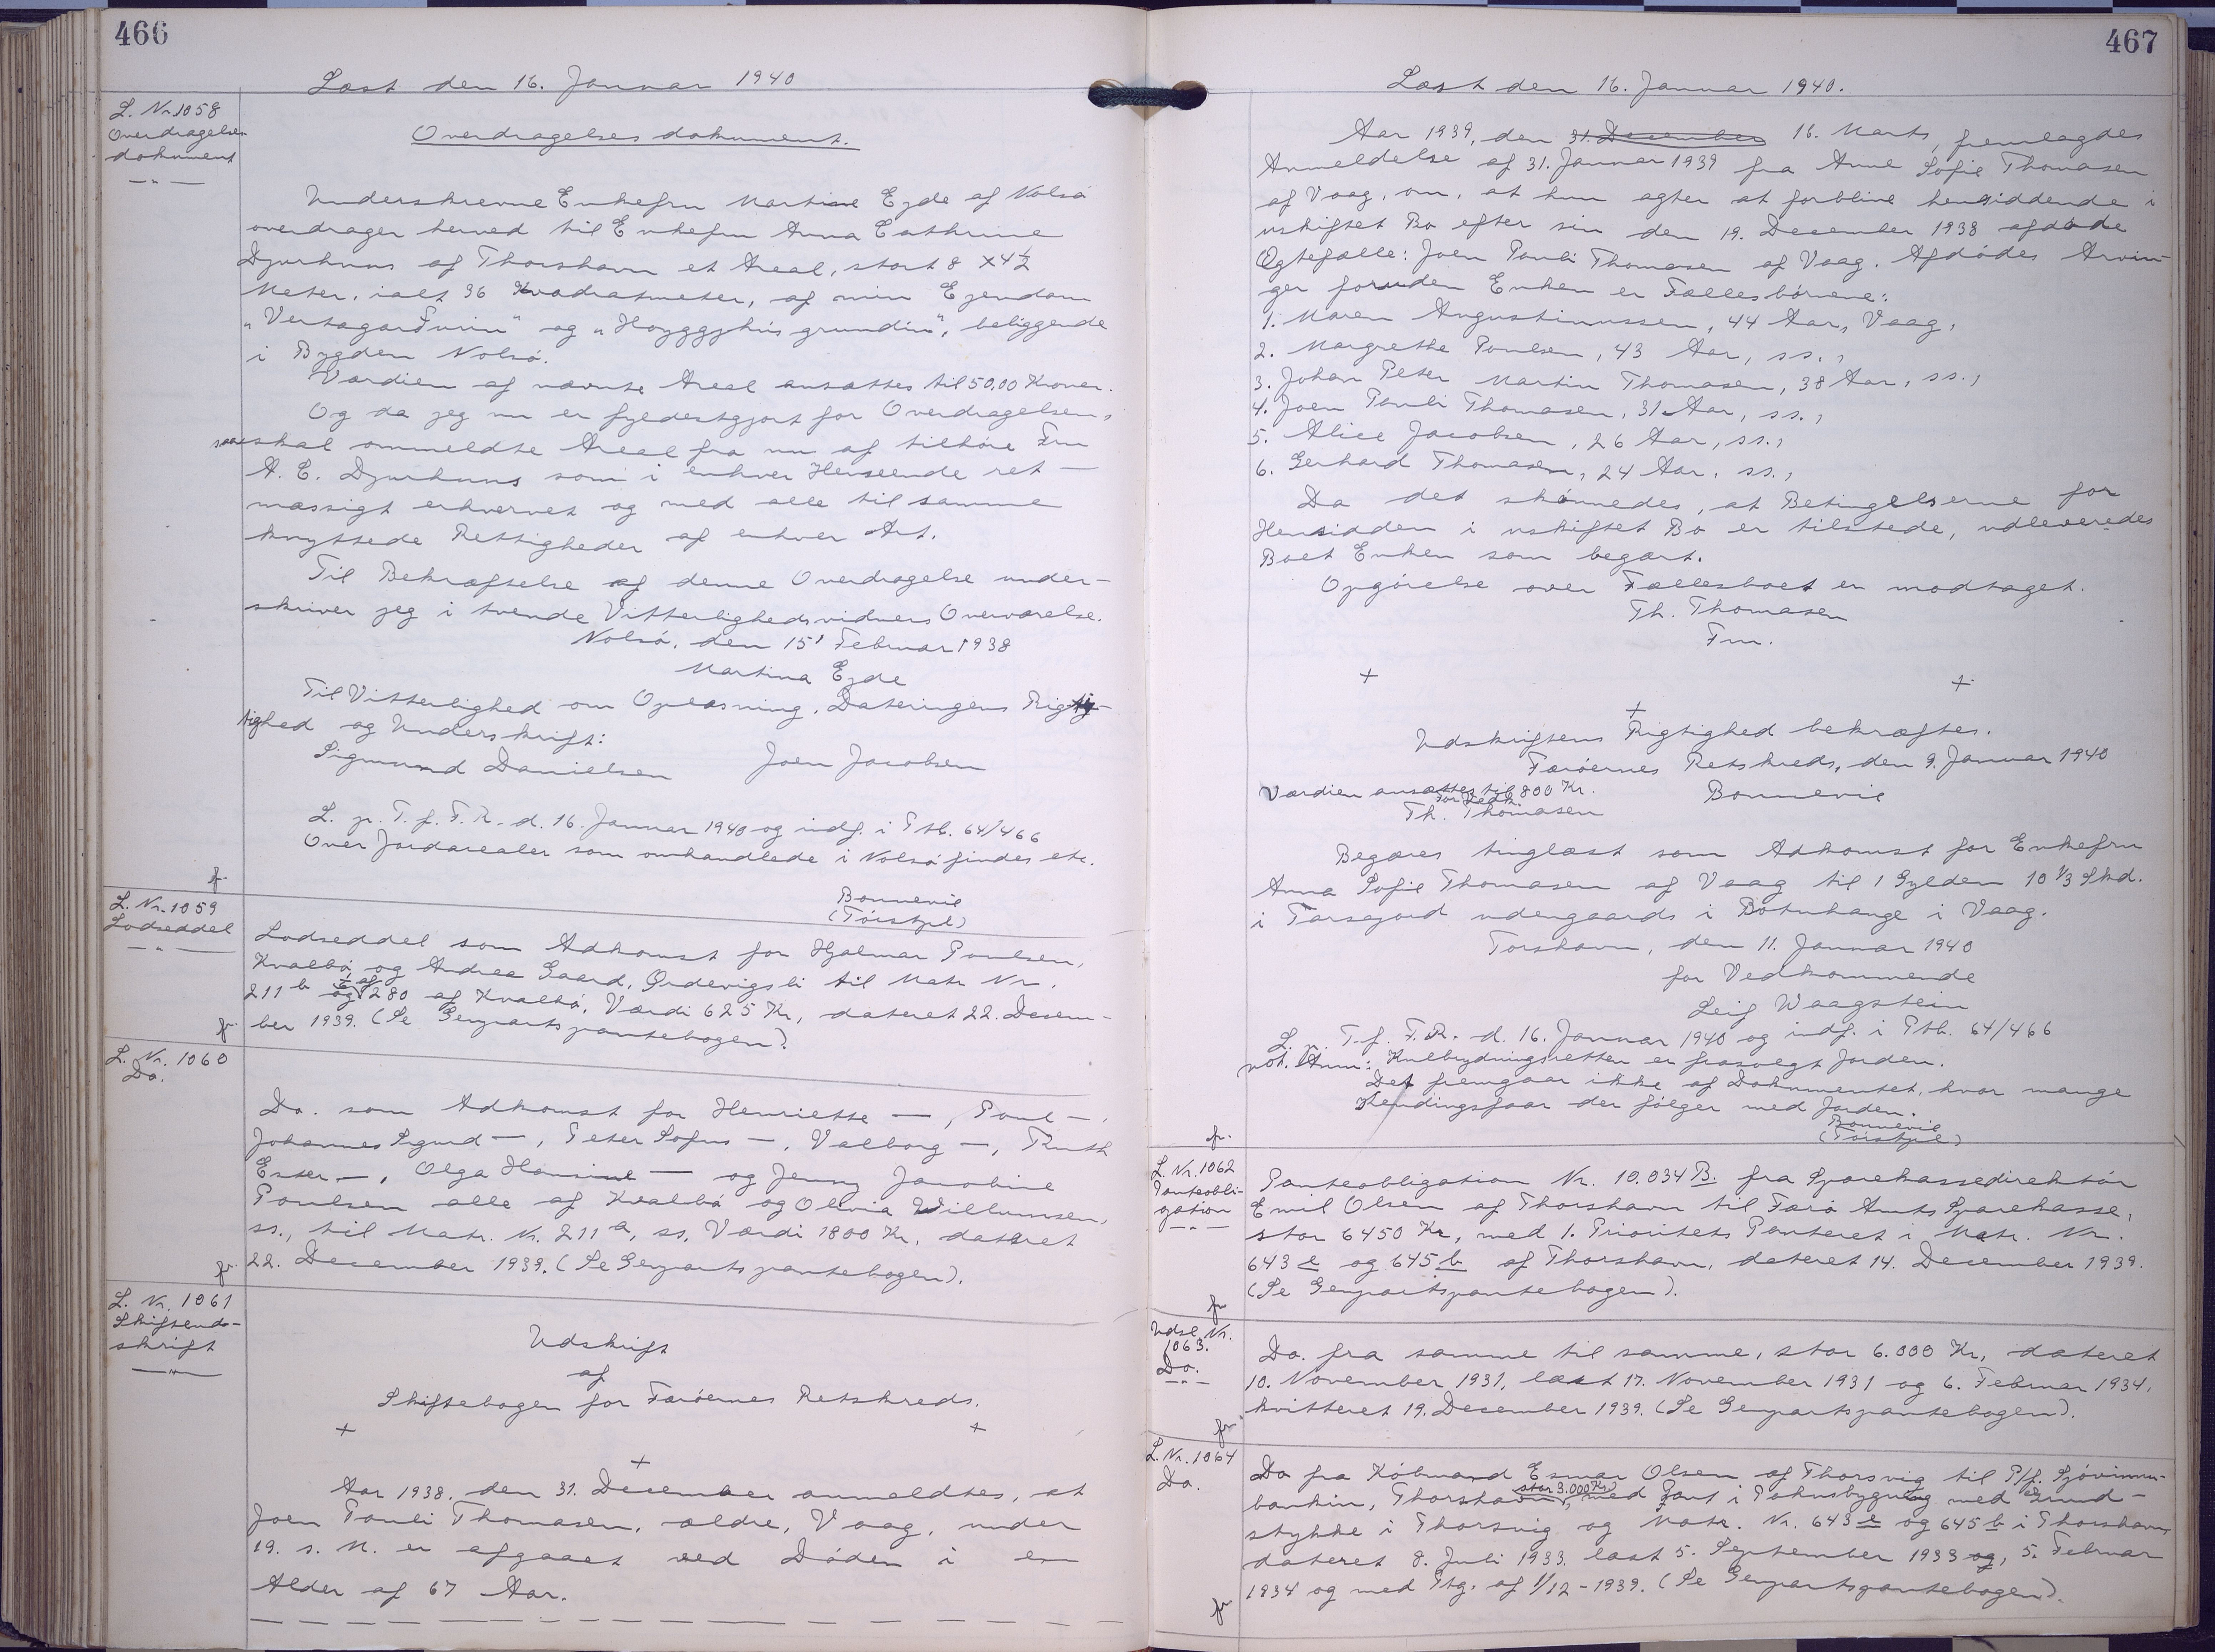 466
Læst den 16. Januar 1940
L. Nr. 1058
Overdragelses
dokument
— " —
Overdragelses dokument.
Underskrevne Enkefru Martine Ejde af Nolsø
overdrager herved til Enkefru Anna Cathrine
Djurhuus af Thorshavn et Areal, stort 8 x 4½
Meter, ialt 36 Kvadratmeter, af min Ejendom
beliggende
i Bygden Nolsø.
Værdien af nævnte Areal ansættes til 50,00 Kroner.
Og da jeg nu er fyldestgjort for Overdragelsen,
saa skal ommeldte Areal fra nu af tilhøre Fru
A. C. Djurhuus som i enhver Henseende ret-
mæssigt erhvervet og med alle til samme
knyttede Rettigheder af enhver Art.
Til Bekræftelse af denne Overdragelse under-
skriver jeg i tvende Vitterlighedsvidners Overværelse.
Nolsø, den 15' Februar 1938
Martina Ejde
Til Vitterlighed om Oplæsning, Dateringens Rig-
tighed og Underskrift:
Sigmund Danielsen Joen Jacobsen
L. p. T. f. F. R. d. 16. Januar 1940 og indf. i Ptb. 64/466
Over Jordarealer som omhandlede i Nolsø findes etc.
fr.
Bonnevie
L. Nr. 1059
Lodseddel
— " —
Lodseddel som Adkomst for Hjalmar Poulsen,
Kvalbø, og Andrea Gaard, Ørdevigsli til Matr. Nr.
211 b og 280 af Kvalbø, Værdi 625 Kr., dateret 22. Decem-
ber 1939. (Se Genpartspantebogen).
fr.
L. Nr. 1060
Do.
Do. som Adkomst for Henriette —, Poul —,
Johannes Sigurd —, Peter Sofus —, Valborg —, Ruth
Ester —, Olga Hansine — og Jenny Jacobine
Poulsen alle af Kvalbø og Olivia Willumsen,
ss., til Matr. Nr. 211 a, ss. Værdi 1800 Kr., dateret
22. December 1939. (Se Genpartspantebogen).
fr.
L. Nr. 1061
Skifteud-
skrift
— " —
Udskrift
af
Skiftebogen for Færøernes Retskreds.
+ +
+
Aar 1938, den 31. December anmeldtes, at
Joen Pauli Thomasen, ældre, Vaag, under
19. s. M. er afgaaet ved Døden i en
Alder af 67 Aar.
467
Læst den 16. Januar 1940.
Aar 1939, den 31. December 16. Marts, fremlagdes
Anmeldelse af 31. Januar 1939 fra Anne Sofie Thomasen
af Vaag, om, at hun agter at forblive hensiddende i
uskiftet Bo efter sin den 19. December 1938 afdøde
Ægtefælle: Joen Pauli Thomasen af Vaag. Afdødes Arvin-
ger foruden Enken er Fællesbørnene:
1. Maren Augustinussen, 44 Aar, Vaag,
2. Margrethe Poulsen, 43 Aar, ss.,
3. Johan Peter Martin Thomasen, 38 Aar, ss.,
4. Joen Pauli Thomasen, 31 Aar, ss.,
5. Alice Jacobsen, 26 Aar, ss.,
6. Gerhard Thomasen, 24 Aar, ss.,
Da det skønnedes, at Betingelserne for
Hensidden i uskiftet Bo er tilstede, udleveredes
Boet Enken som begært.
Opgørelse over Fællesboet er modtaget.
Th. Thomasen
Fm.
+ +
+
Udskriftens Rigtighed bekræftes.
Færøernes Retskreds, den 9. Januar 1940
Bonnevie
Værdien ansættes til 800 Kr.
For Vedk.
Th. Thomasen
Begæres tinglæst som Adkomst for Enkefru
Anna Sofie Thomasen af Vaag til 1 Gylden 10 1/3 Skd.
i udengaards i Botnhauge i Vaag.
Torshavn, den 11. Januar 1940
for Vedkommende
Leif Waagstein
L. p. T. f. F. R. d. 16. Januar 1940 og indf. i Ptb. 64/466
Anm: Kulbrydningsretten er frasolgt Jorden.
Det fremgaar ikke af Dokumentet, hvor mange
der følger med Jorden.
Bonnevie
fr.
L. Nr. 1062
Panteobli-
gation
— " —
Panteobligation Nr. 10.034 B. fra Sparekassedirektør
Emil Olsen af Thorshavn til Færø Amts Sparekasse,
stor 6450 Kr., med 1. Prioritets Panteret i Matr. Nr.
643 e og 645 b af Thorshavn, dateret 14. December 1939.
(Se Genpartspantebogen).
fr.
Udsl. Nr.
1063.
Do.
— " —
Do. fra samme til samme, stor 6.000 Kr., dateret
10. November 1931, læst 17. November 1931 og 6. Februar 1934,
kvitteret 19. December 1939. (Se Genpartspantebogen).
fr.
L. Nr. 1064
Do.
Do fra Købmand Esmar Olsen af Thorsvig til P/f. Sjóvinnu-
bankin, Thorshavn, stor 3.000 Kr. med Pant i Pakhusbygning med Grund-
stykke i Thorsvig og Matr. Nr. 643 e og 645 b i Thorshavn,
dateret 8. Juli 1933, læst 5. September 1933 og, 5. Februar
1934 og med Ptg. af 1/12 - 1939. (Se Genpartspantebogen).
fr.